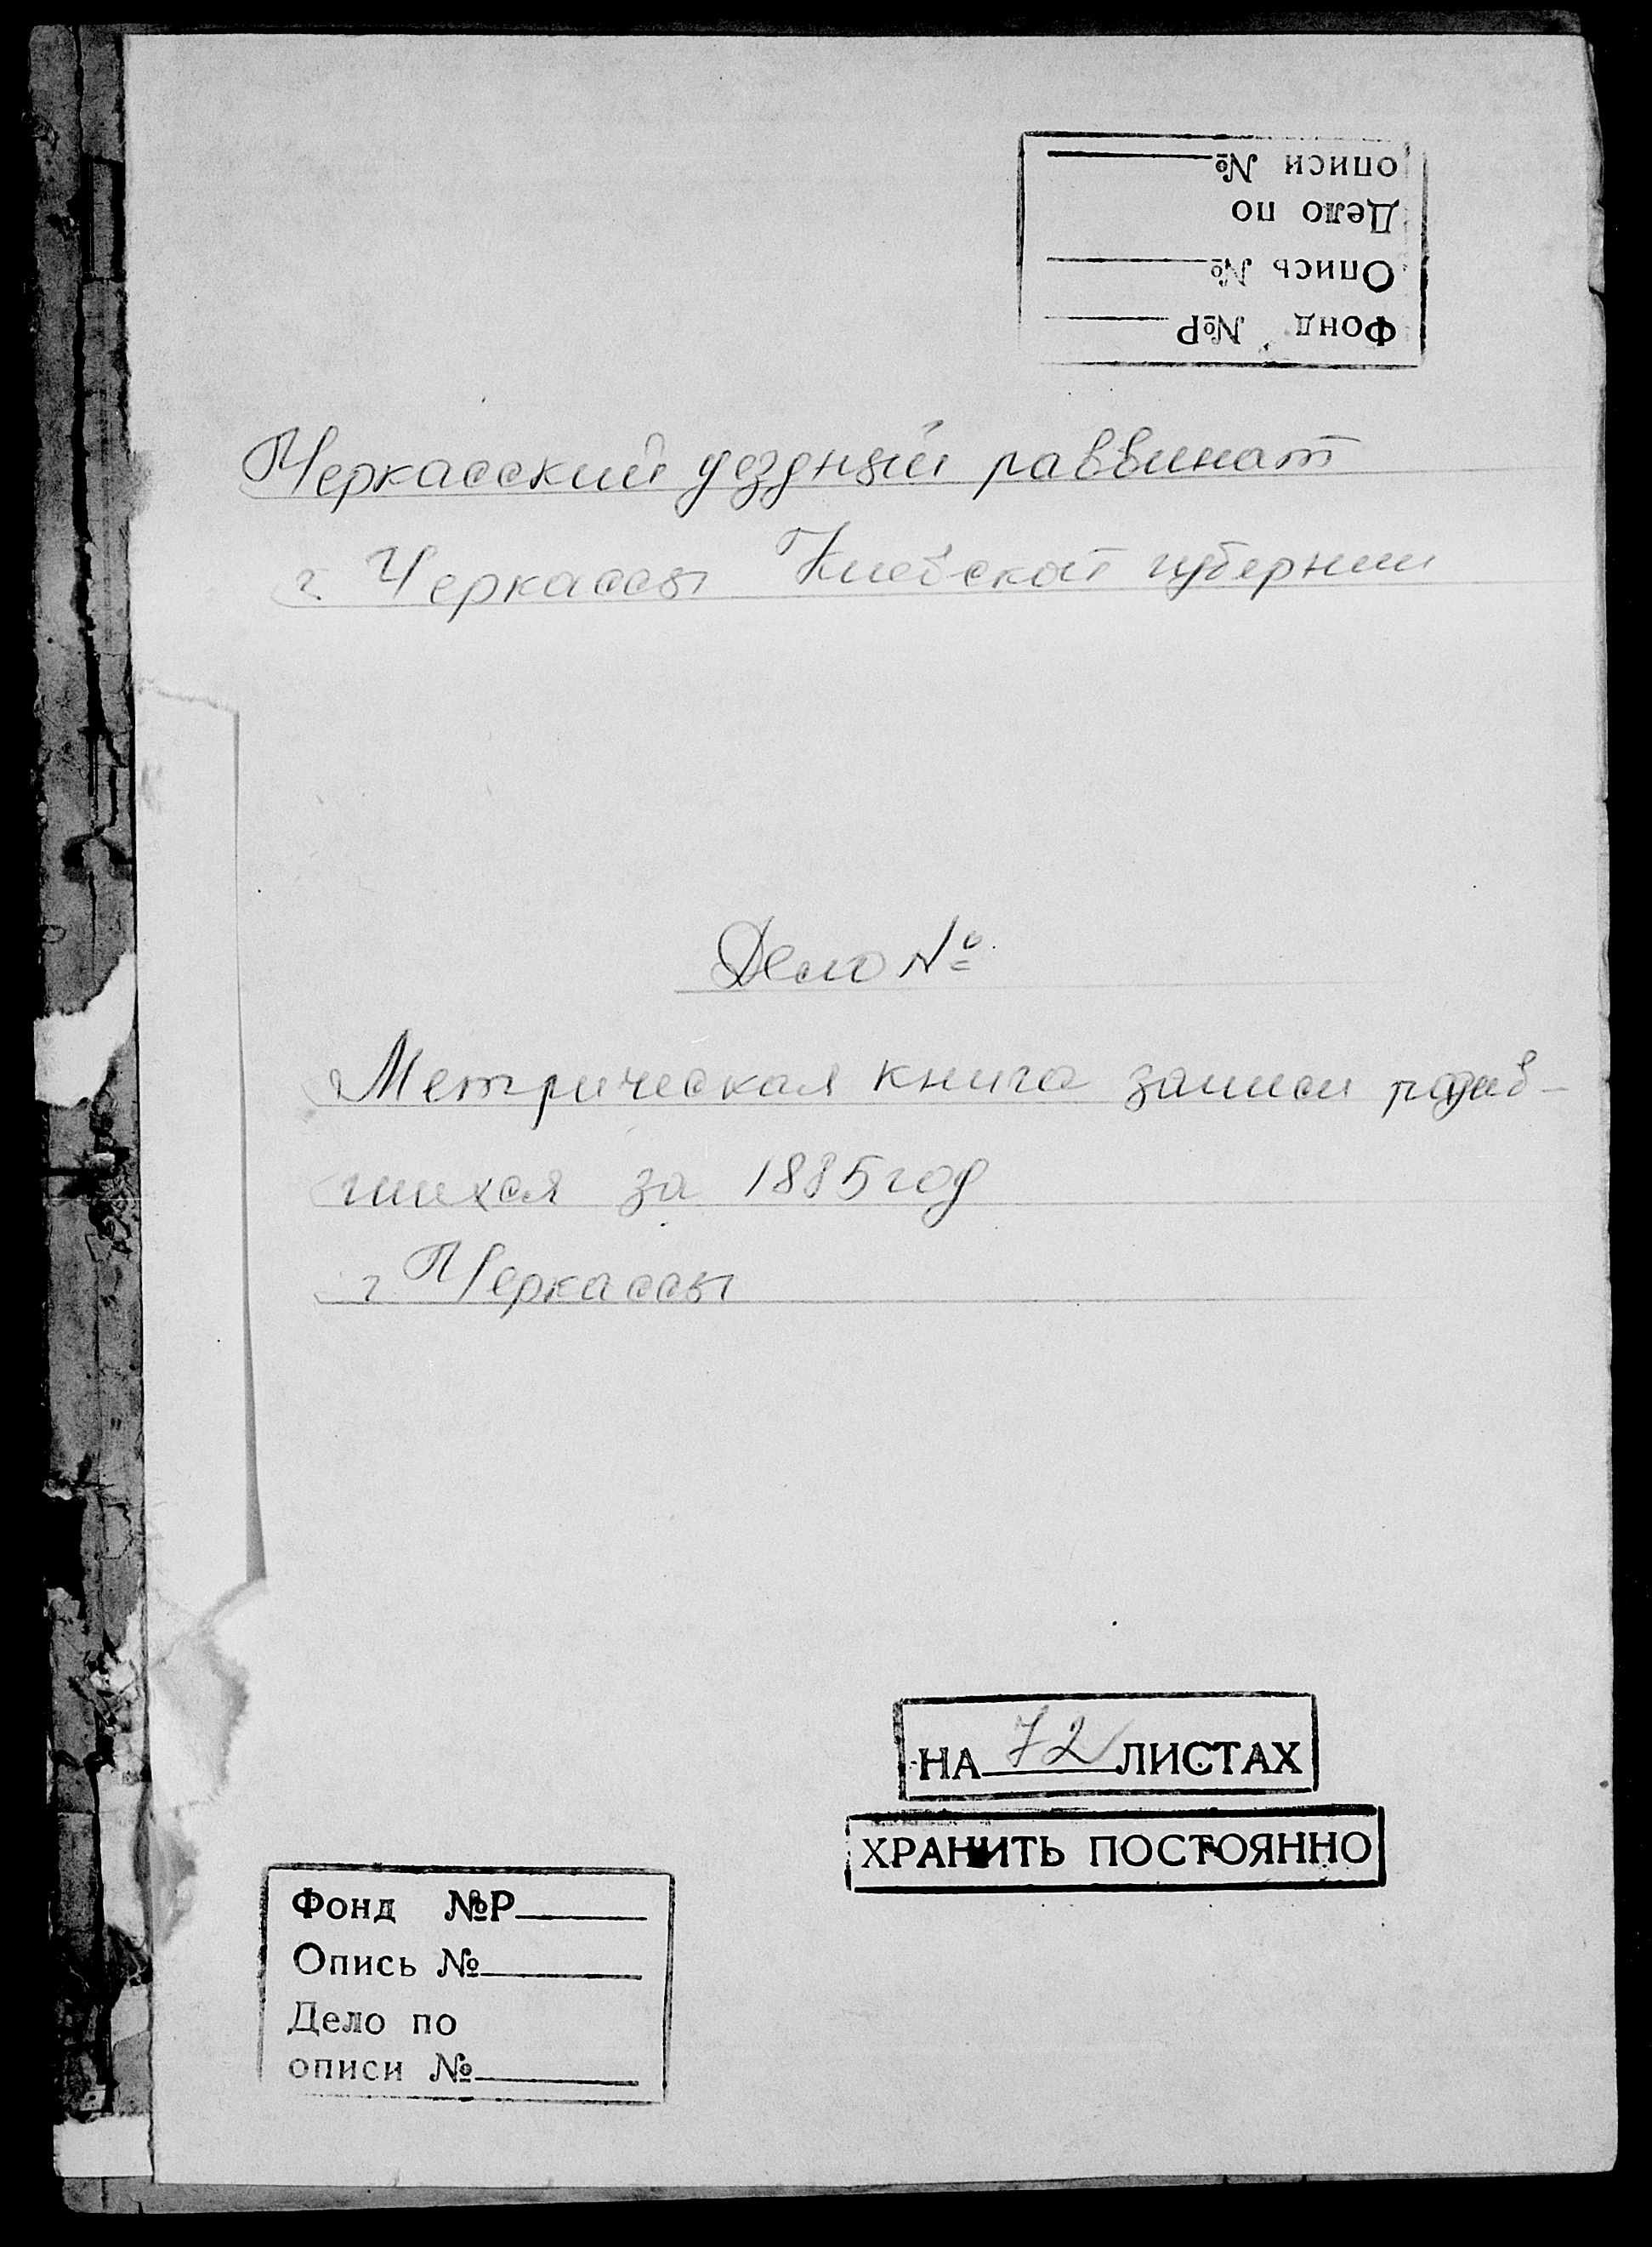 Фонд №Р
Опись №
Дело по
описи №
Черкасский уездный раввинат
г. Черкассы Киевской губернии
Дело №
Метрическая книга записи родив-
шихся за 1885 год
г. Черкассы
НА 72 ЛИСТАХ
ХРАНИТЬ ПОСТОЯННО
Фонд №Р
Опись №
Дело по
описи №